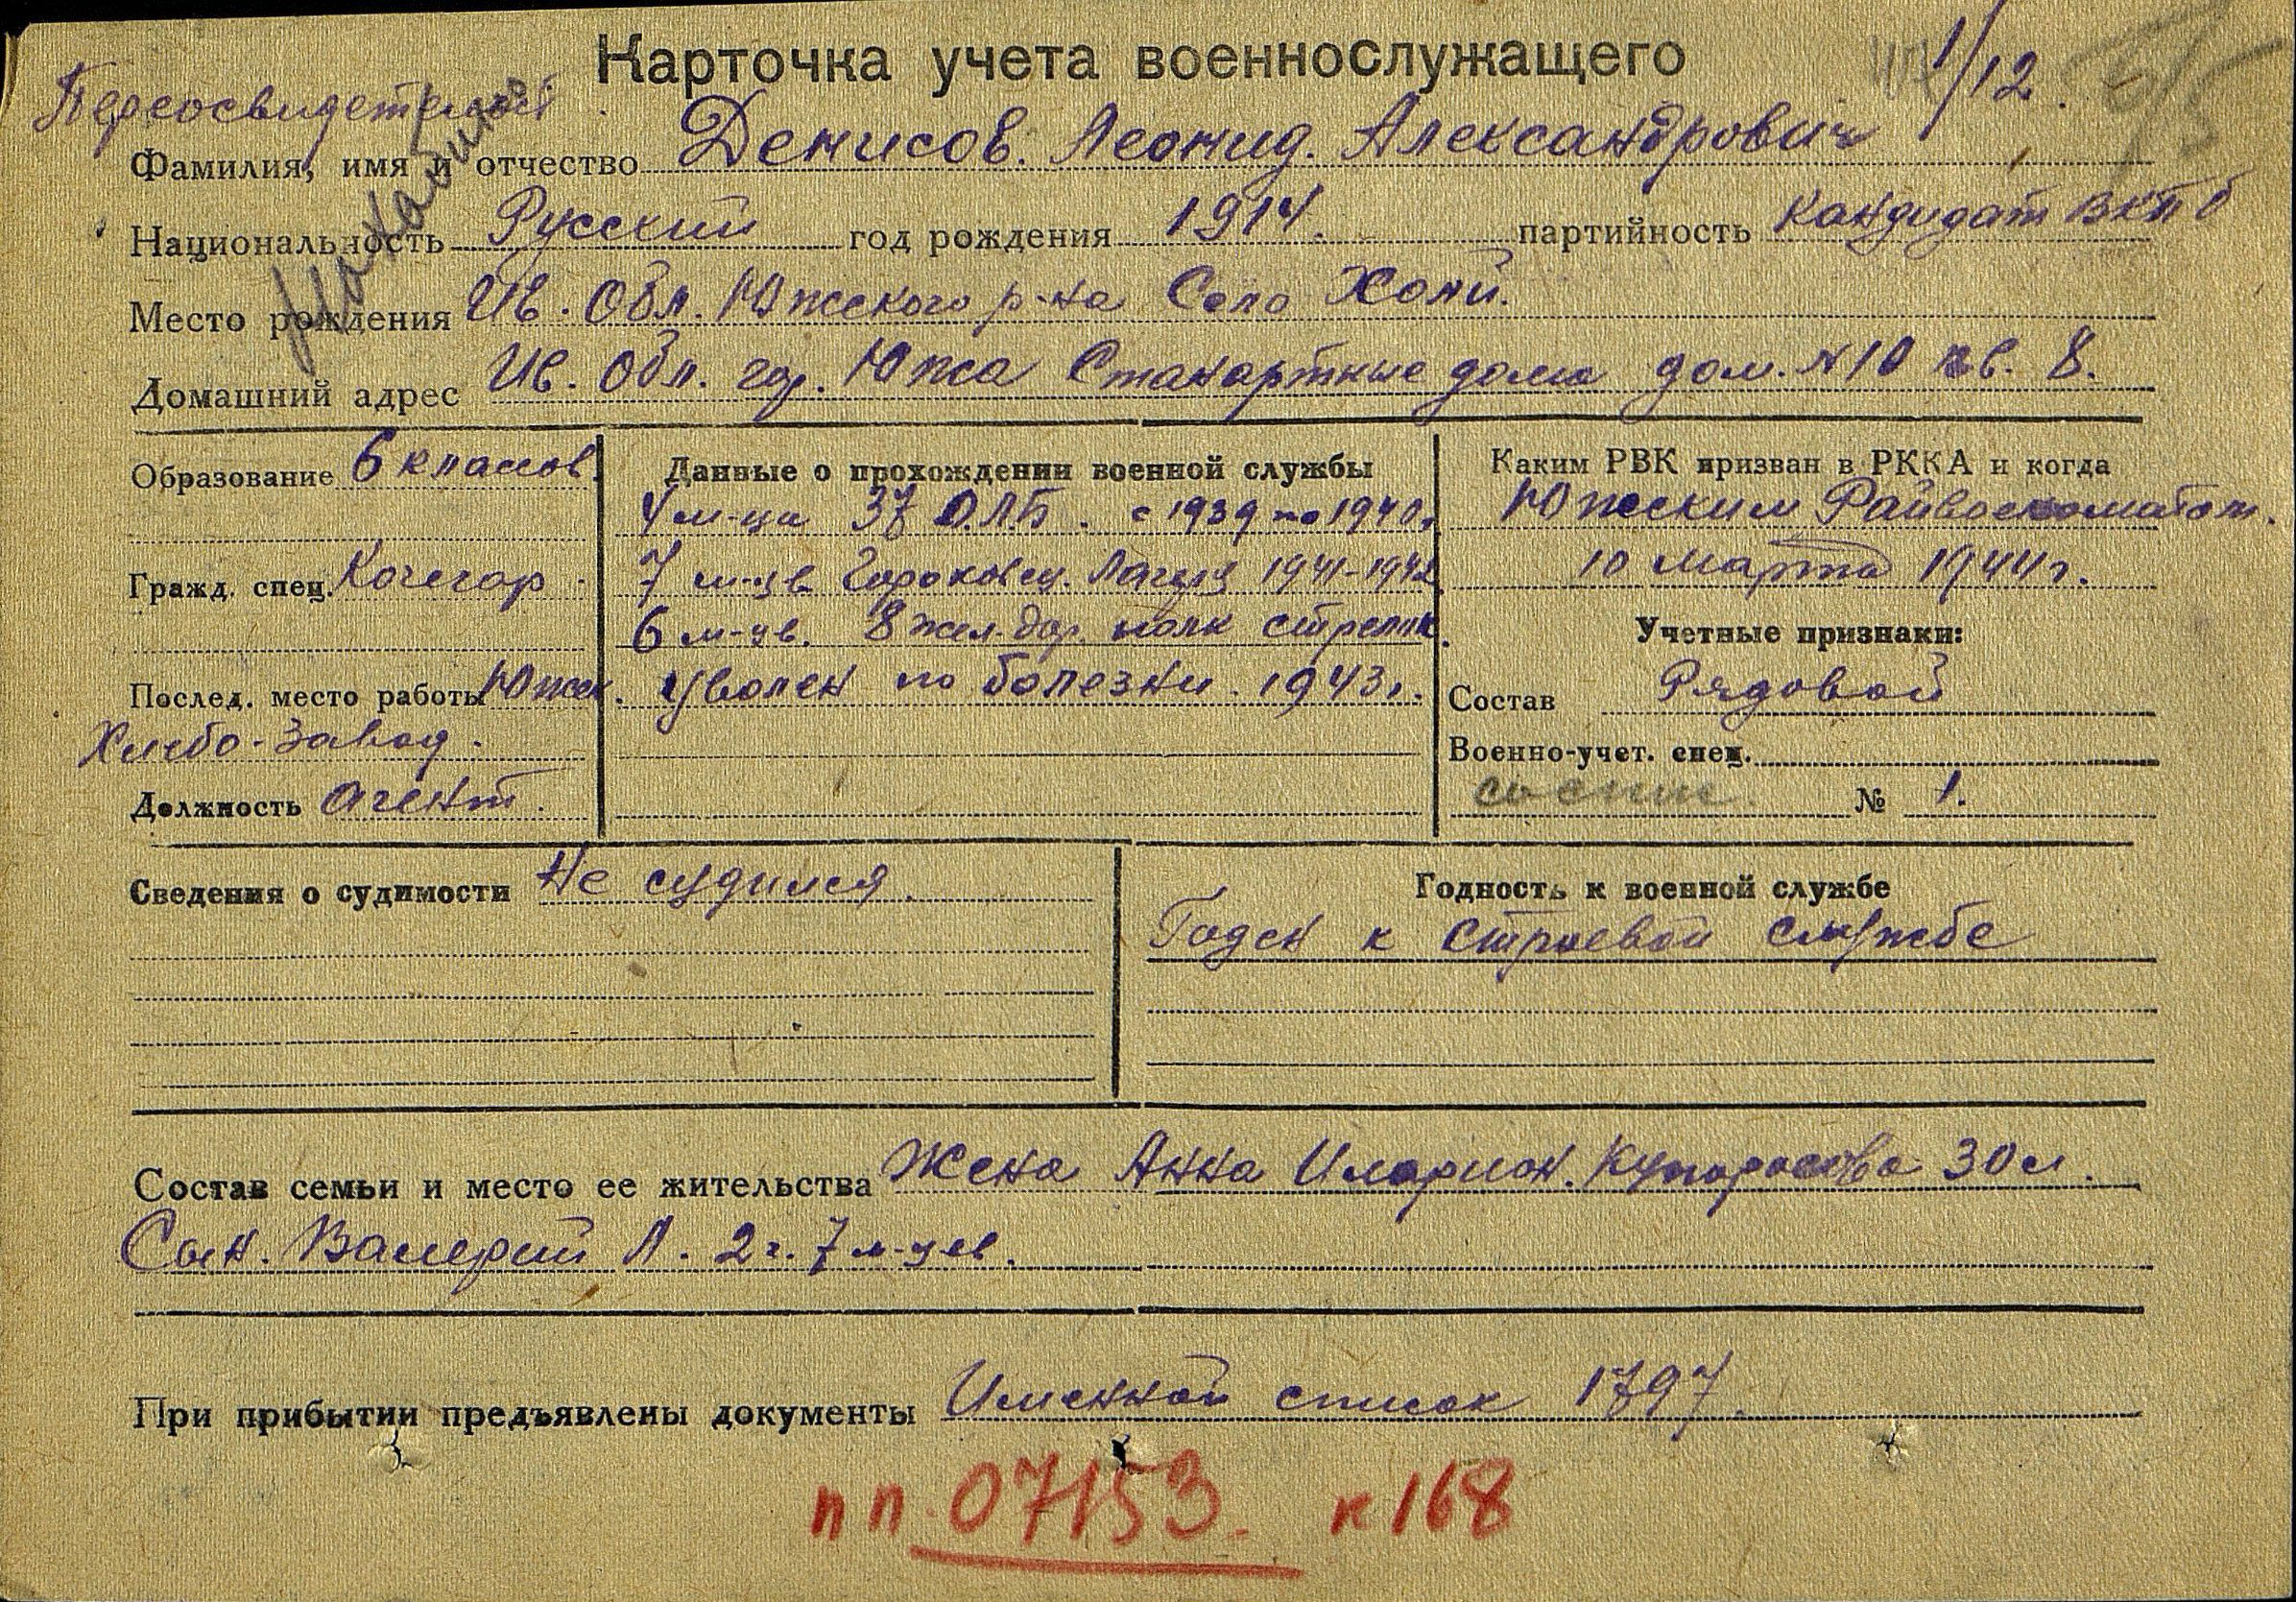 Карточка учета военнослужащего
1/12.
Фамилия, имя и отчество Денисов. Леонид. Александрович
Национальность Русский год рождения 1914. партийность Кандидат ВКПб
Место рождения Ив. Обл. Южского р-на Село Холуй.
Домашний адрес Ив. Обл. гор. Южа Станартные дома дом. N10 кв. 8.
Образование 6 классов.
Гражд. спец. Кочегар.
Послед. место работы Южск.
Хлебо-Завод.
Должность агент.
Данные о прохождении военной службы
4 м-ца 37 О.Л.Б. с 1939 по 1940г.
7 м-цв Гороховец. Лагеря 1941-1942
6 м-цв. 8 жел-дор. полк стрелок.
Уволен по болезни. 1943г.
Каким РВК призван в РККА и когда
Южским Райвоенкоматом.
10 Марта 1944г.
Учетные признаки:
Состав Рядовой
Военно-учет. спец.
№ 1.
Сведения о судимости Не судился.
Годность к военной службе
Годен к строевой службе
Состав семьи и место ее жительства Жена Анна Иларион. Купоросова 30 л.
Сын. Валерий Л. 2г. 7 м-цев.
При прибытии предъявлены документы Именной список 1797.
пп. 07153. к 168